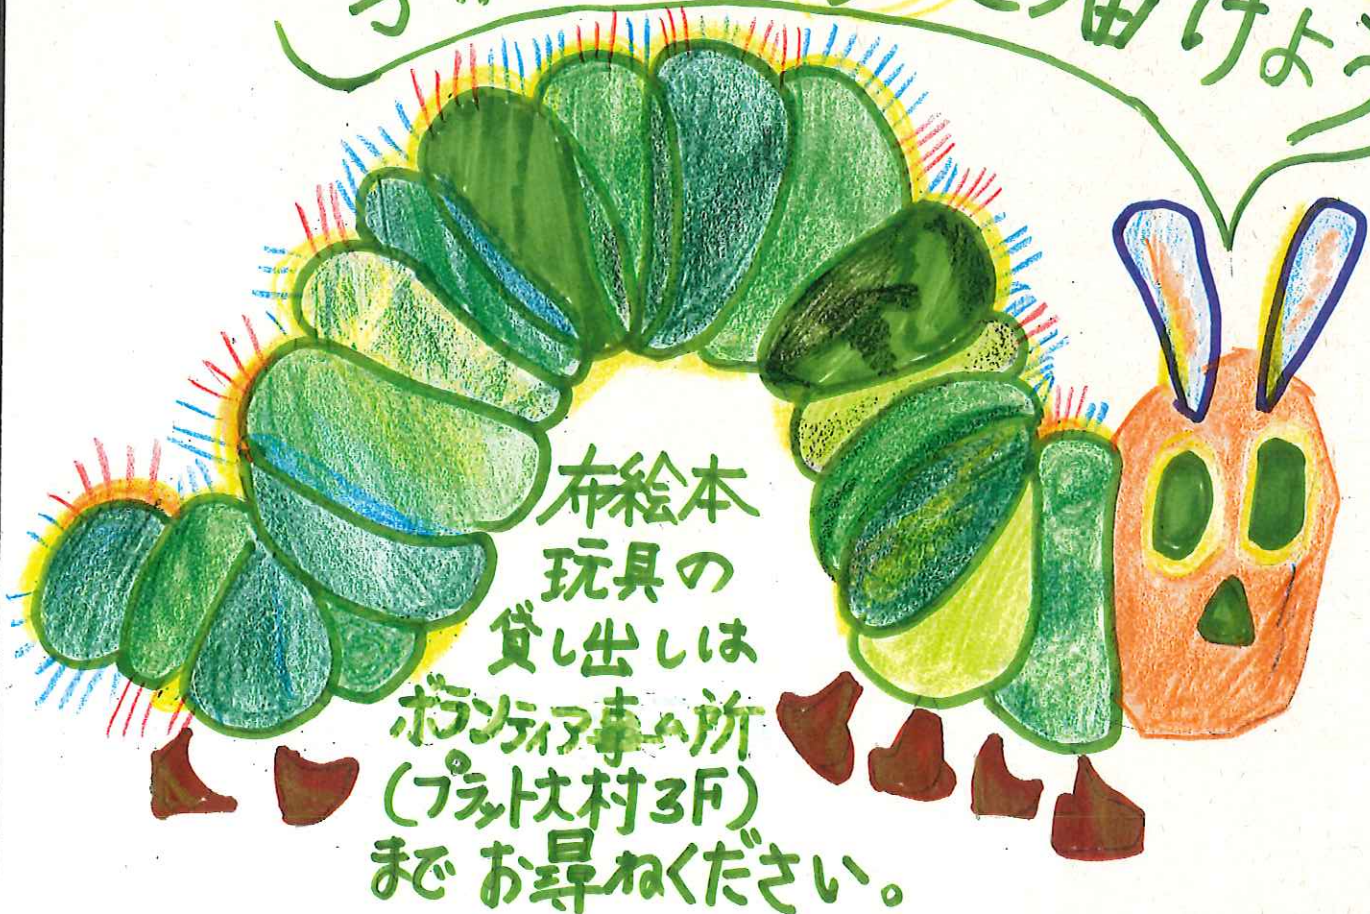 届けよう
布絵本
玩具の
貸し出しは
ボランティア事ム所
(プラット大村3F)
までお尋ねください。